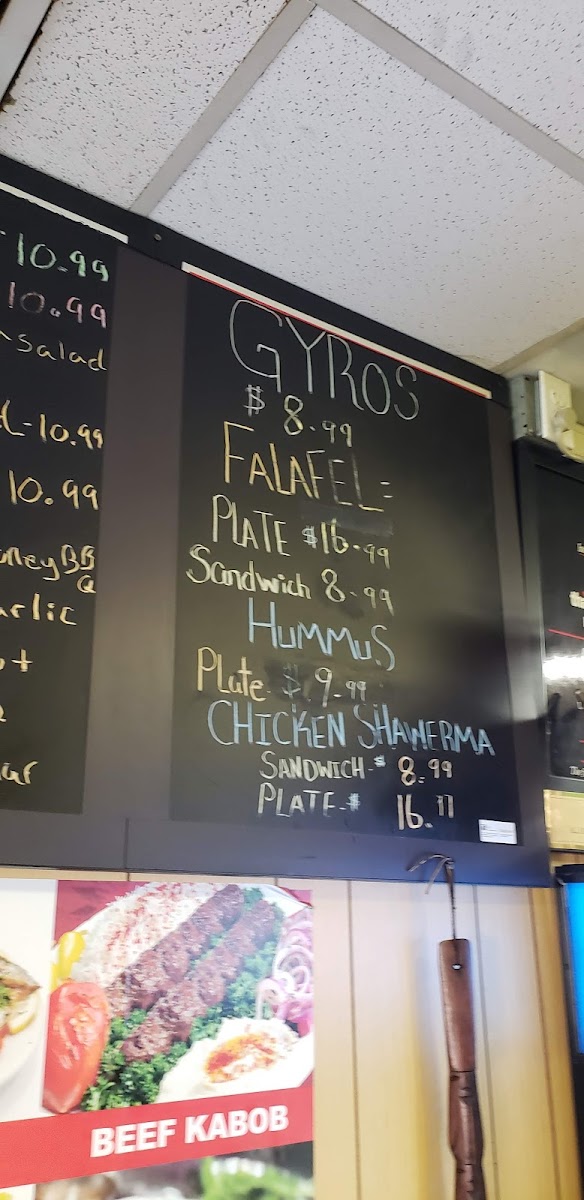 10.99
10.99
salad
10.99
10.99
BB
Q
GYROS
$ 8.99
FALAFEL=
PLATE $16.99
Sandwich 8.99
HUMMUS
Plate $ 9.99
CHICKEN SHAWERMA
SANDWICH-$ 8.99
PLATE-$
BEEF KABOB